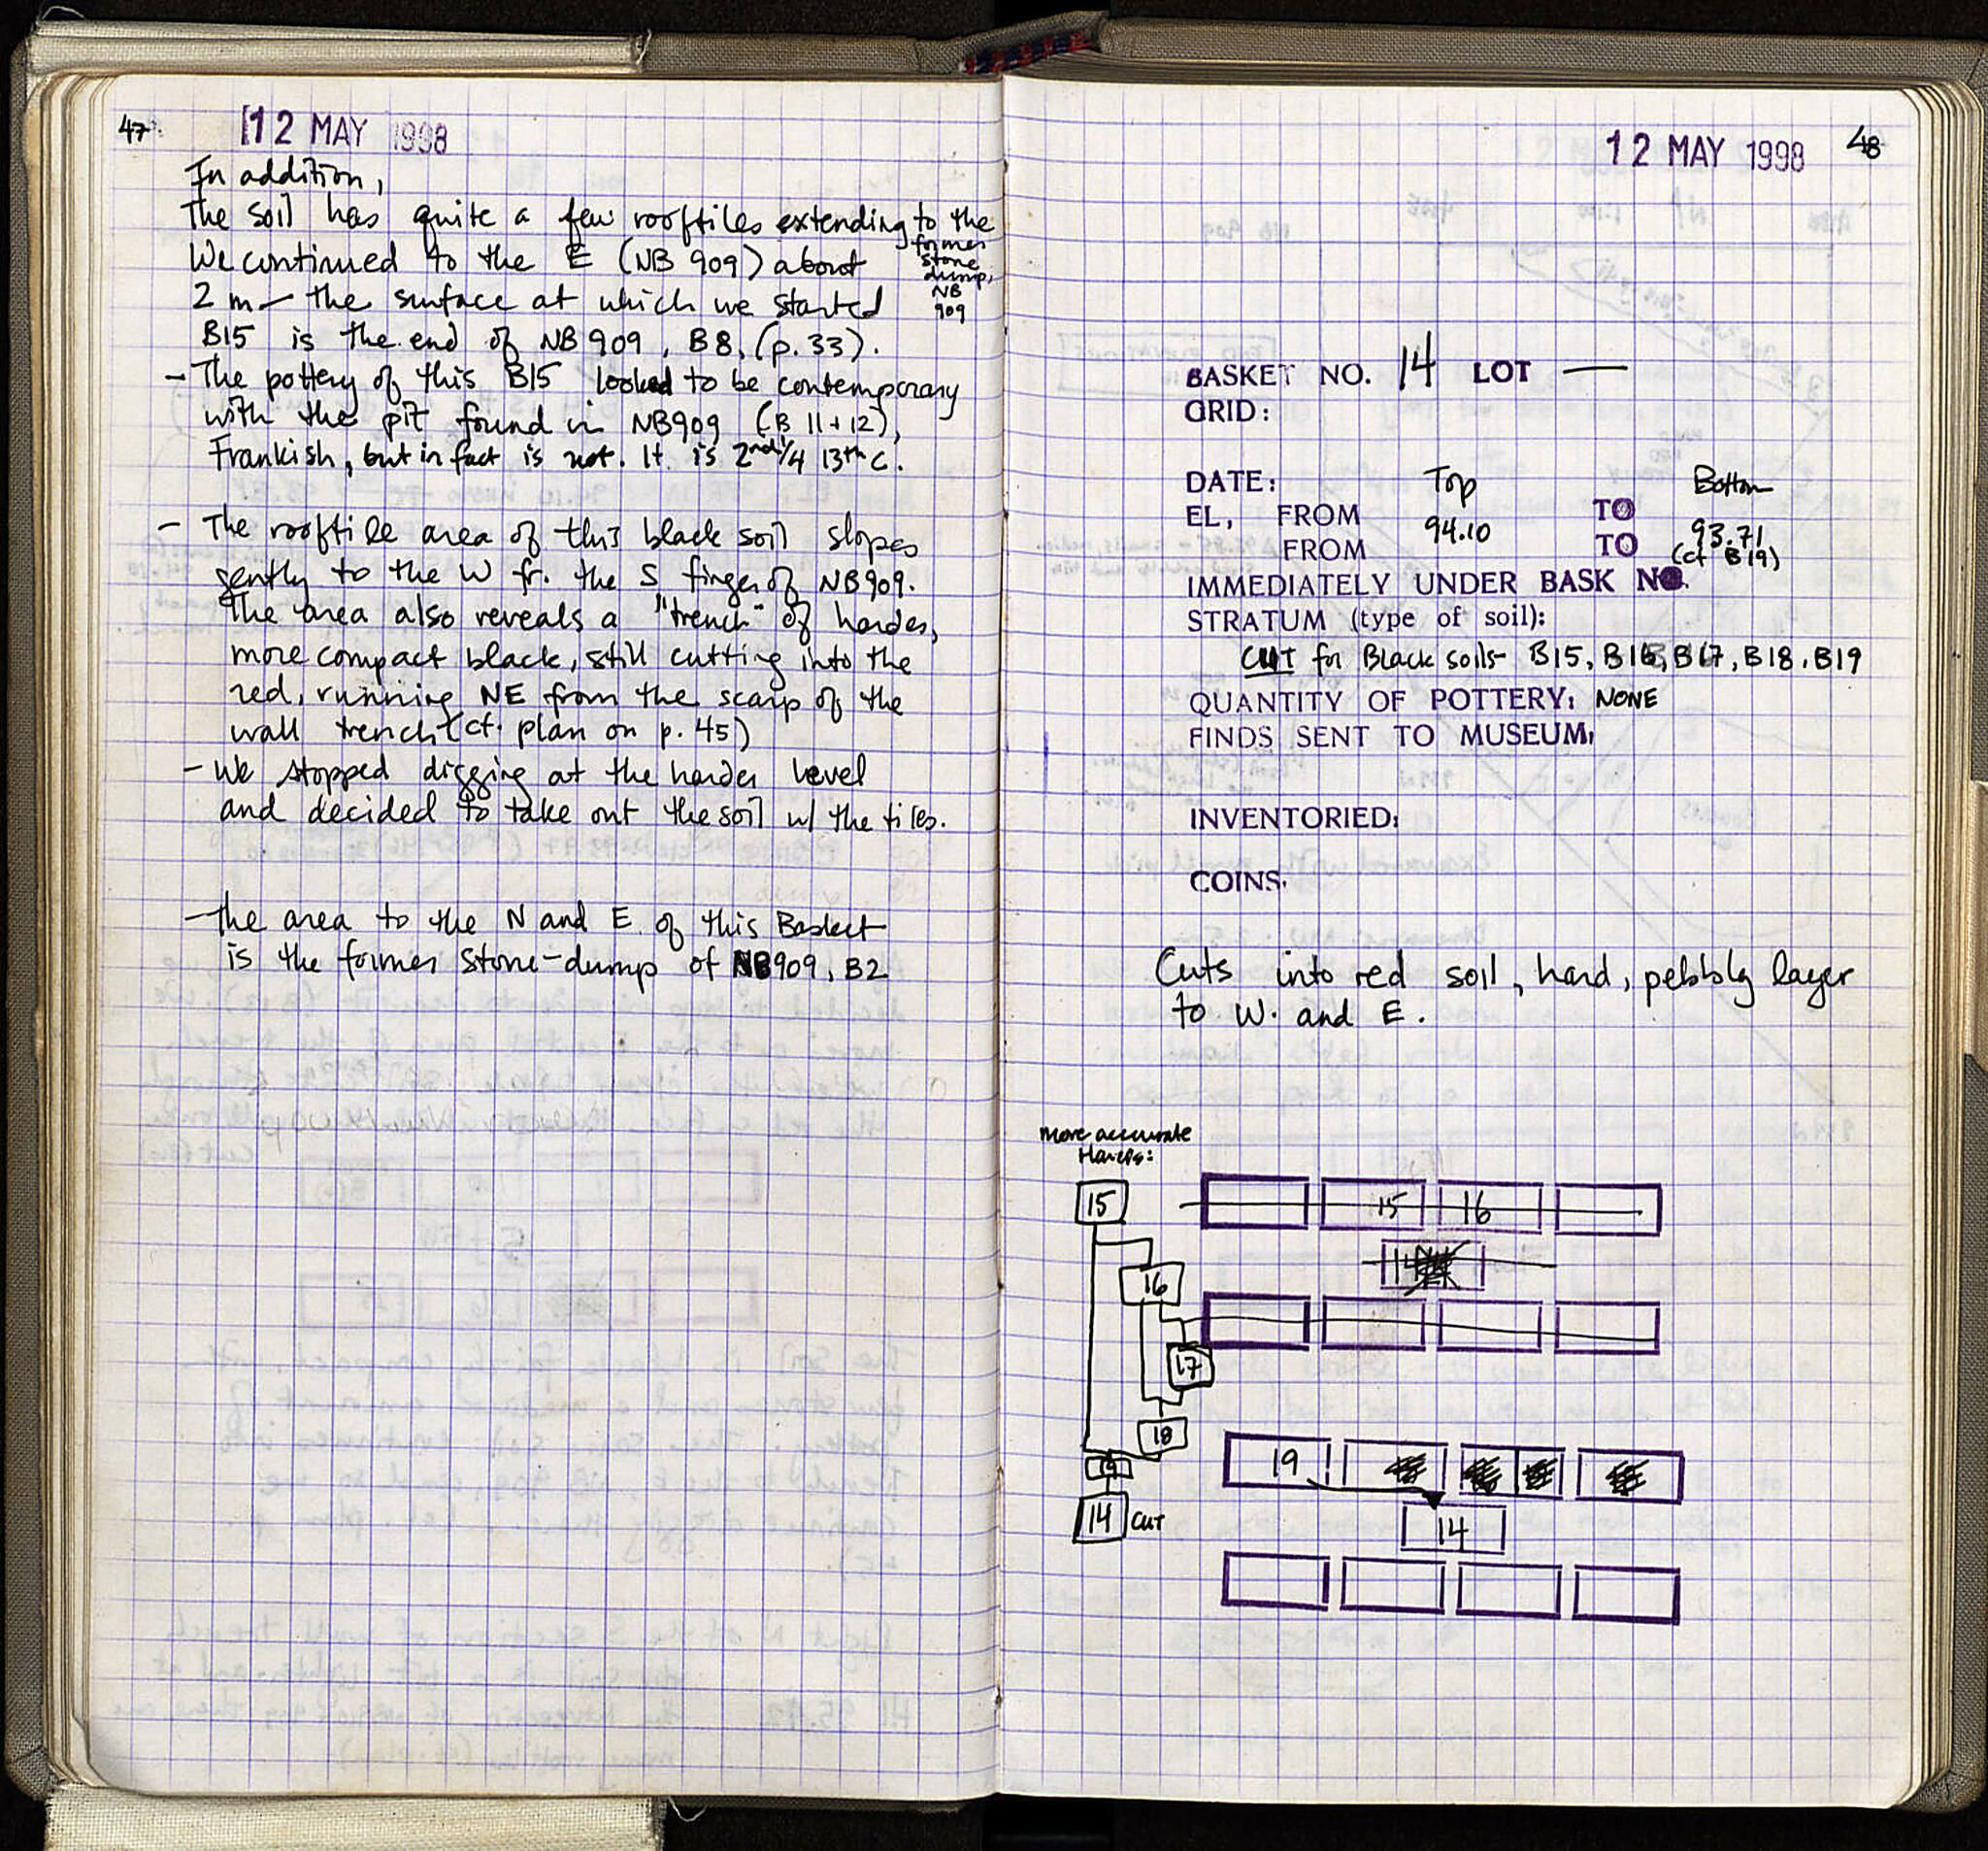 47
12 MAY 1998
In addition,
The soil has quite a few rooftiles extending to the
former
stone
dump,
NB
909
We continued to the E (NB 909) about
2 m – the surface at which we started
B15 is the end of NB 909, B8, (p. 33).
- The pottery of this B15 looked to be contemporary
with the pit found in NB909 (B 11+12),
Frankish, but in fact is not. It is 2nd 1/4 13th c.
- The rooftile area of this black soil slopes
gently to the W fr. the S finger of NB909.
The area also reveals a "trench" of harder,
more compact black, still cutting into the
red, running NE from the scarp of the
wall trench (cf. plan on p. 45)
- We stopped digging at the harder level
and decided to take out the soil w/ the tiles.
- The area to the N and E of this Basket
is the former stone-dump of NB909, B2
12 MAY 1998
48
BASKET NO. 14 LOT —
GRID:
DATE: Top Bottom
EL, FROM 94.10 TO 93.71
FROM TO (cf B19)
IMMEDIATELY UNDER BASK NO.
STRATUM (type of soil):
CUT for Black soils - B15, B16, B17, B18, B19
QUANTITY OF POTTERY: NONE
FINDS SENT TO MUSEUM:
INVENTORIED:
COINS:
Cuts into red soil, hard, pebbly layer
to W. and E.
more accurate
Harris:
15
16
17
18
19
14 CUT
15 16
14
19
14